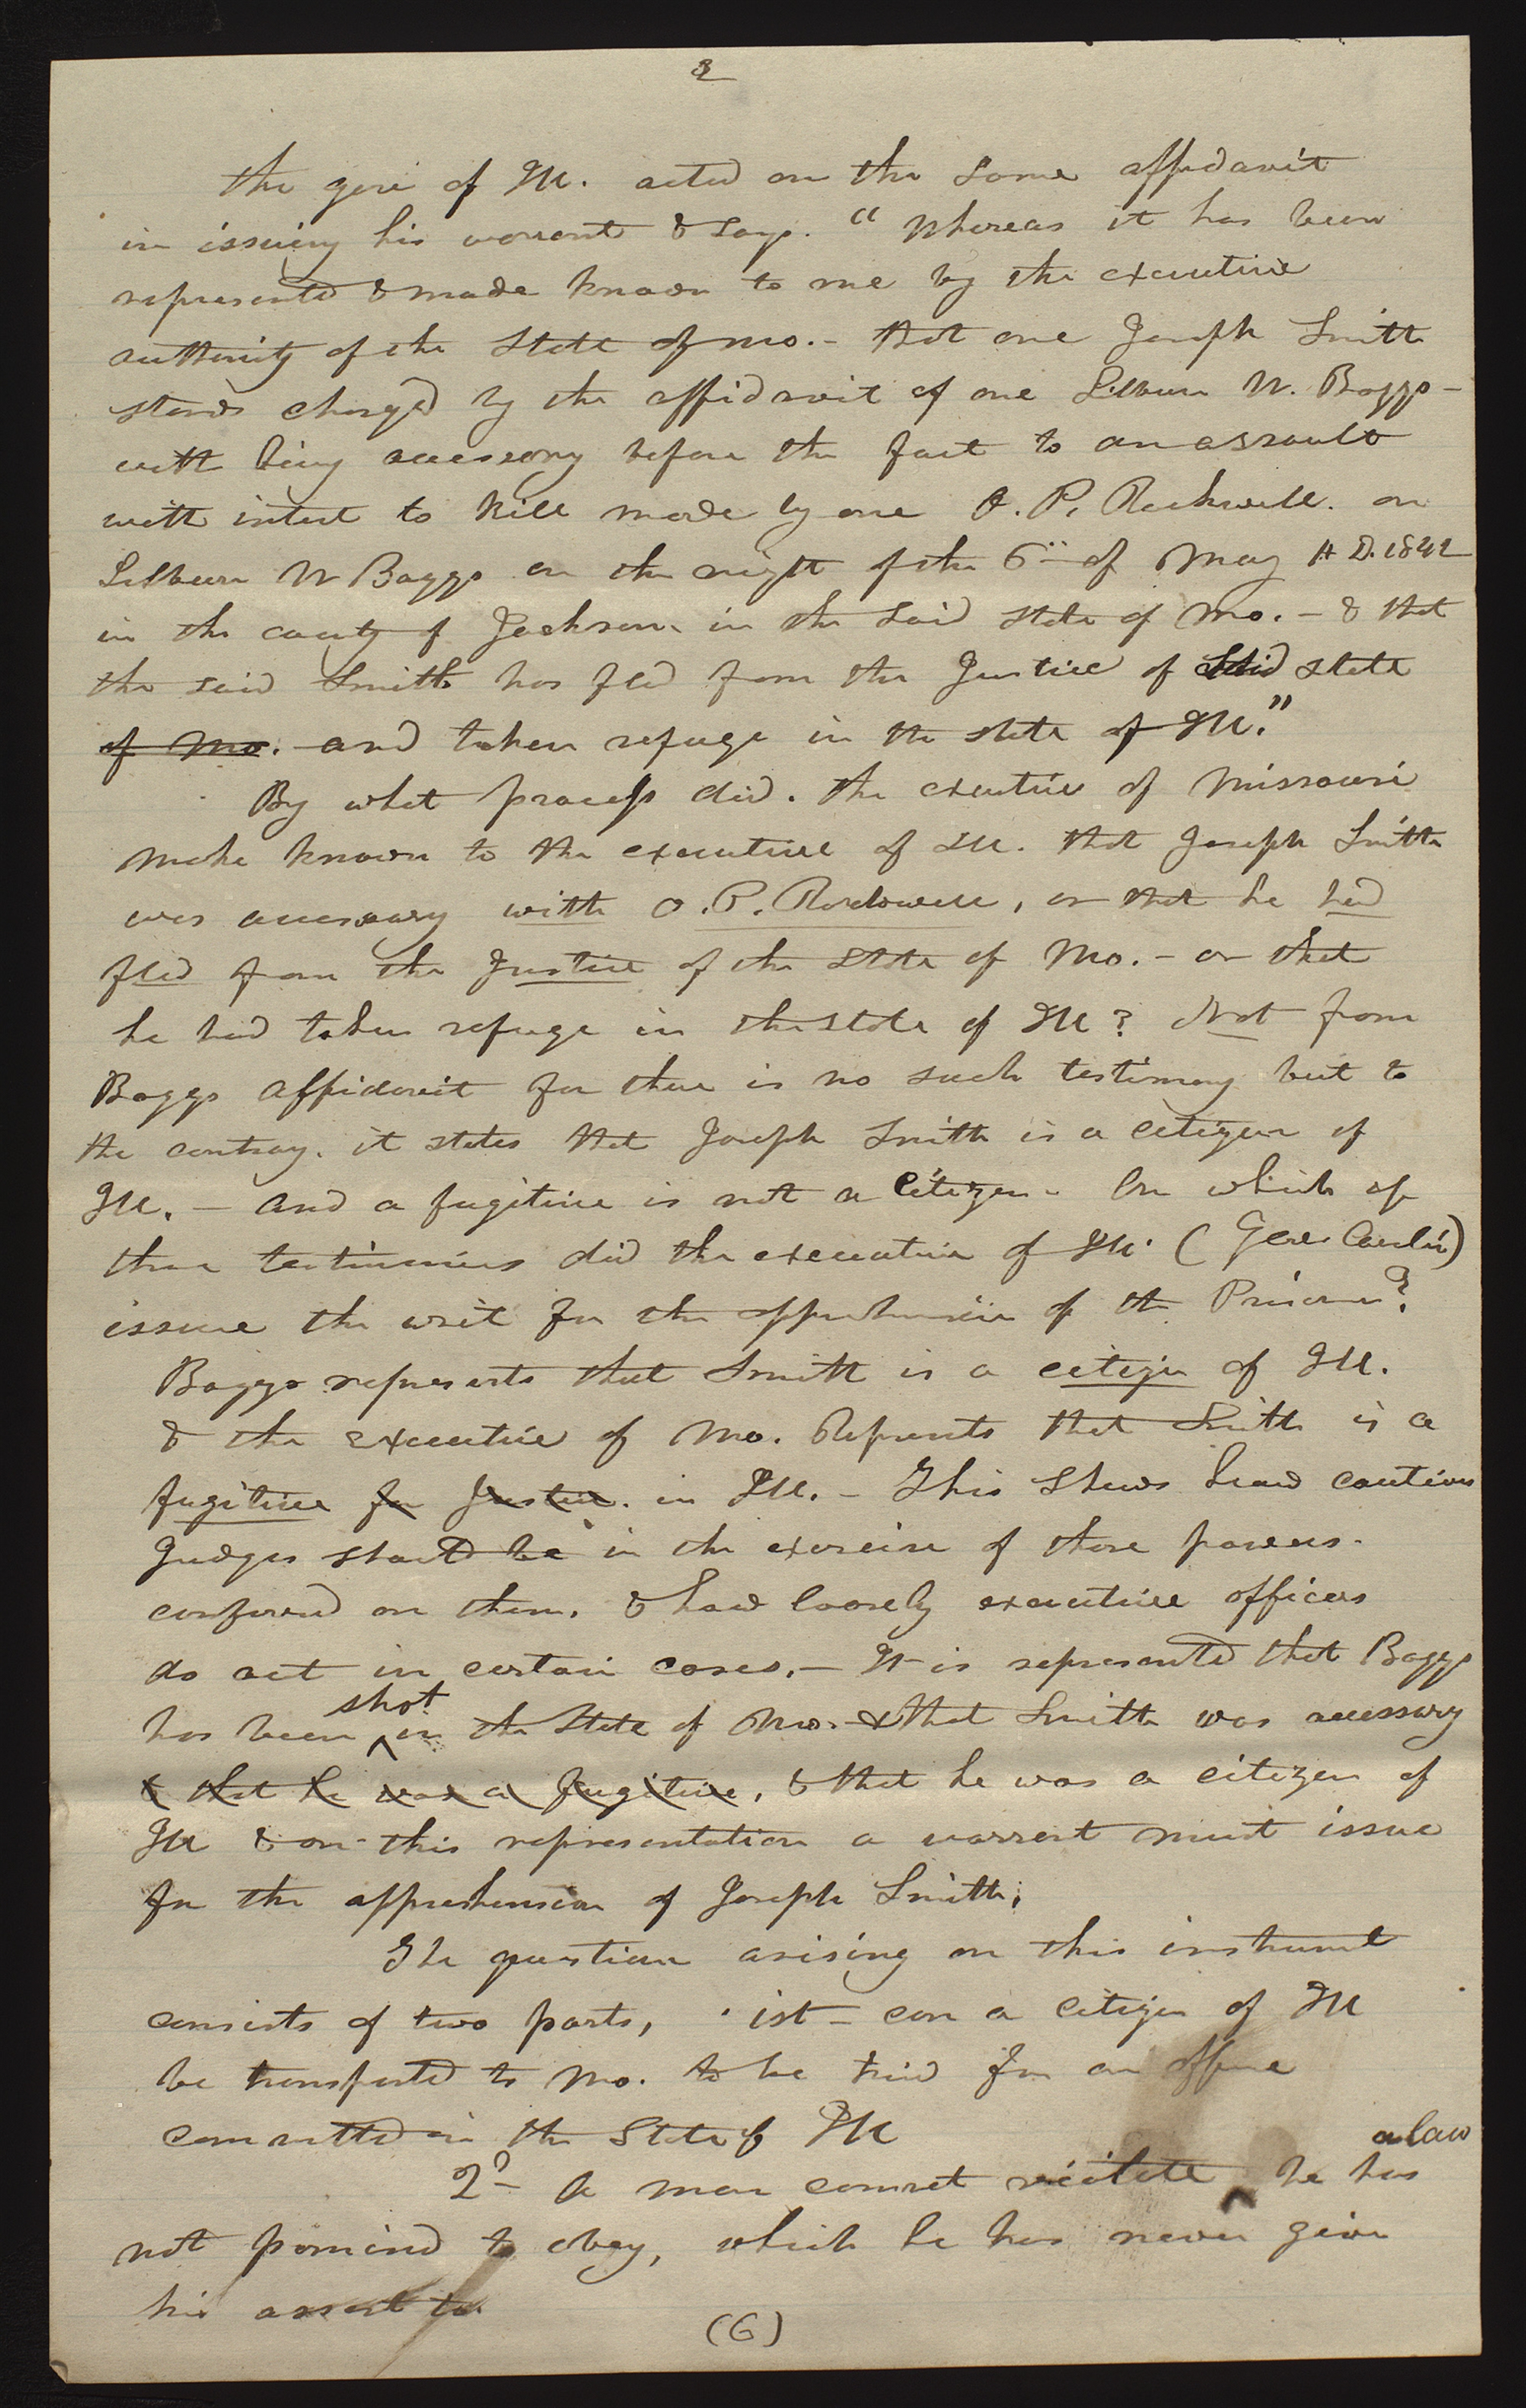 3
the gove of Ill. acted on the same affidavit
in issuing his warrant & says. "Whereas it has been
represented & made known to me by the executive
authority of the State of Mo. – that one Joseph Smith
stands charged by the affidavit of one Lilburn W. Boggs –
with being accessory before the fact to an assault
with intent to kill made by one O. P. Rockwell. on
Lilburn W Boggs on the night of the 6th of May A D. 1842
in the county of Jackson in the said state of Mo. – & that
the said Smith has fled from the Justice of said state
of Mo. and taken refuge in the state of Ill."
By what process did. the executive of Missouri
make known to the executive of Ill. that Joseph Smith
was accessary with O. P. Rockwell, or that he had
fled from the Justice of the state of Mo. – or that
he had taken refuge in the state of Ill? Not from
Boggs affidavit for there is no such testimony but to
the contray. it states that Joseph Smith is a citizen of
Ill. – and a fugitive is not a Citizen – On which of
these testimonies did the executive of Ill. (Gov. Carlin)
issue the writ for the apprehension of the Prisoner?
Boggs represents that Smith is a citizen of Ill.
& the executive of Mo. Represents that Smith is a
fugitive for Justice. in Ill. – This Shews how cautious
Judges should be in the exercise of those powers.
conferred on them. & how loosely executive officers
do act in certain cases. – It is represented that Boggs
has been shot in the State of Mo. – & that Smith was accessary
& that he was a fugitive, & that he was a citizen of
Ill & on this representation a warrent must issue
for the apprehension of Joseph Smith.
The question arising on this instrument
consists of two parts, 1st – can a citizen of Ill
be transported to Mo. to be tried for an offence
committed in the State of Ill
2d – A man cannot violate a law he has
not promised to obey, which he has never given
his assent to.
(6)